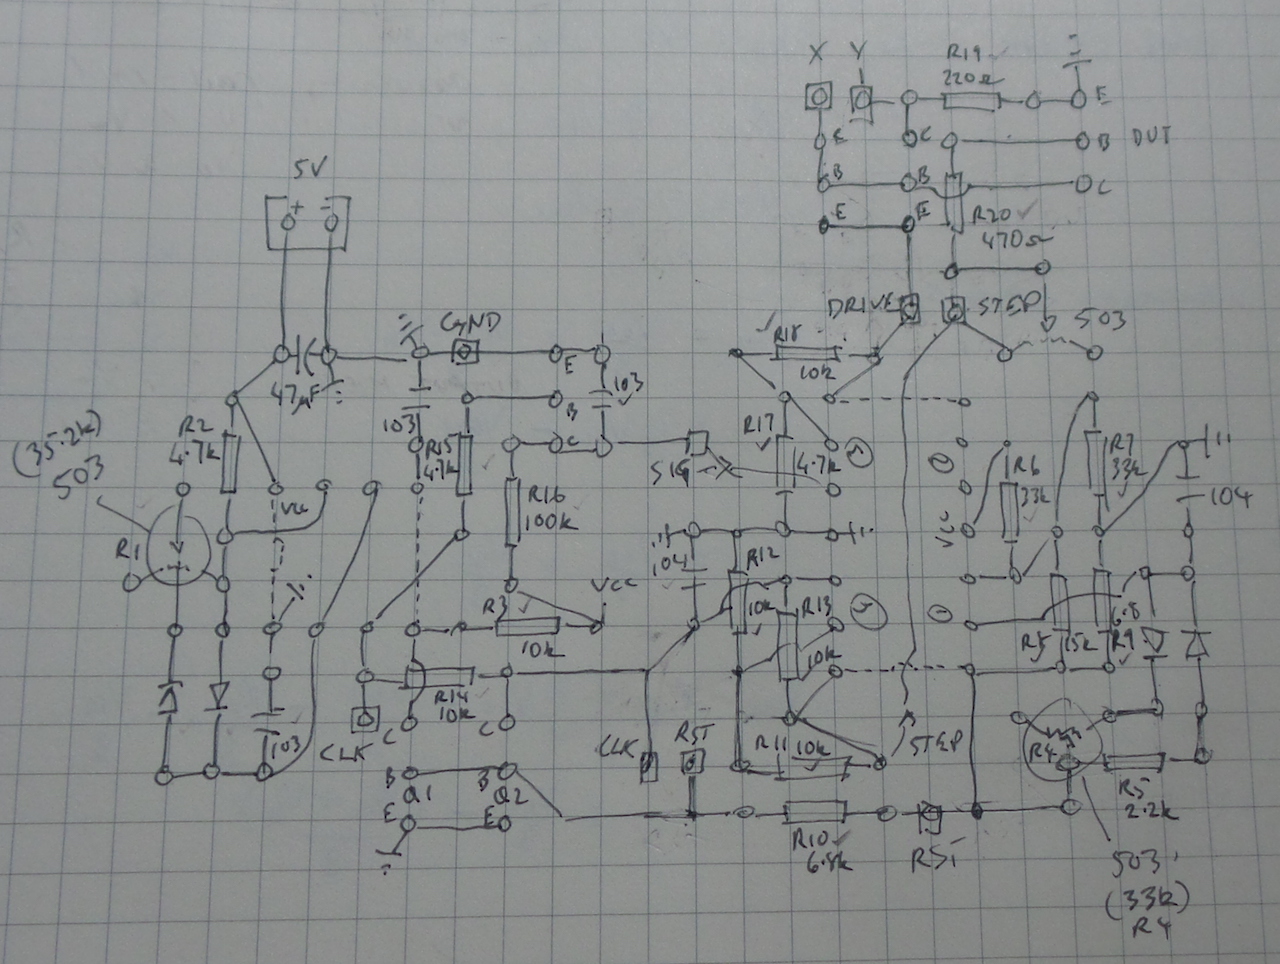 X Y R19 220Ω
E
E C B DUT
B B C
5V
+ -
E E R20 470Ω
DRIVE STEP 503
GND R18 10k
47µF
E
103
B
103
C
(35.2k)
503
R2 4.7k
R15 4.7k
R17 4.7k
SIG
R6 33k
R7 33k
104
VCC
R16 100k
R1
VCC
104
R12 10k
VCC
R3 10k
R13 10k
6.8
R9
15k
R14 10k
103
CLK
C C
CLK RST
R11 10k
STEP
R4
R5 2.2k
B B
Q1 Q2
E E
R10 6.8k
RST
503
(33k)
R4